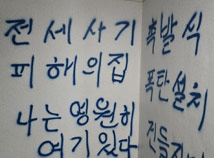 전세사기
피해의집
나는 영원히
여기 있다
폭발식
폭탄설치
건들지